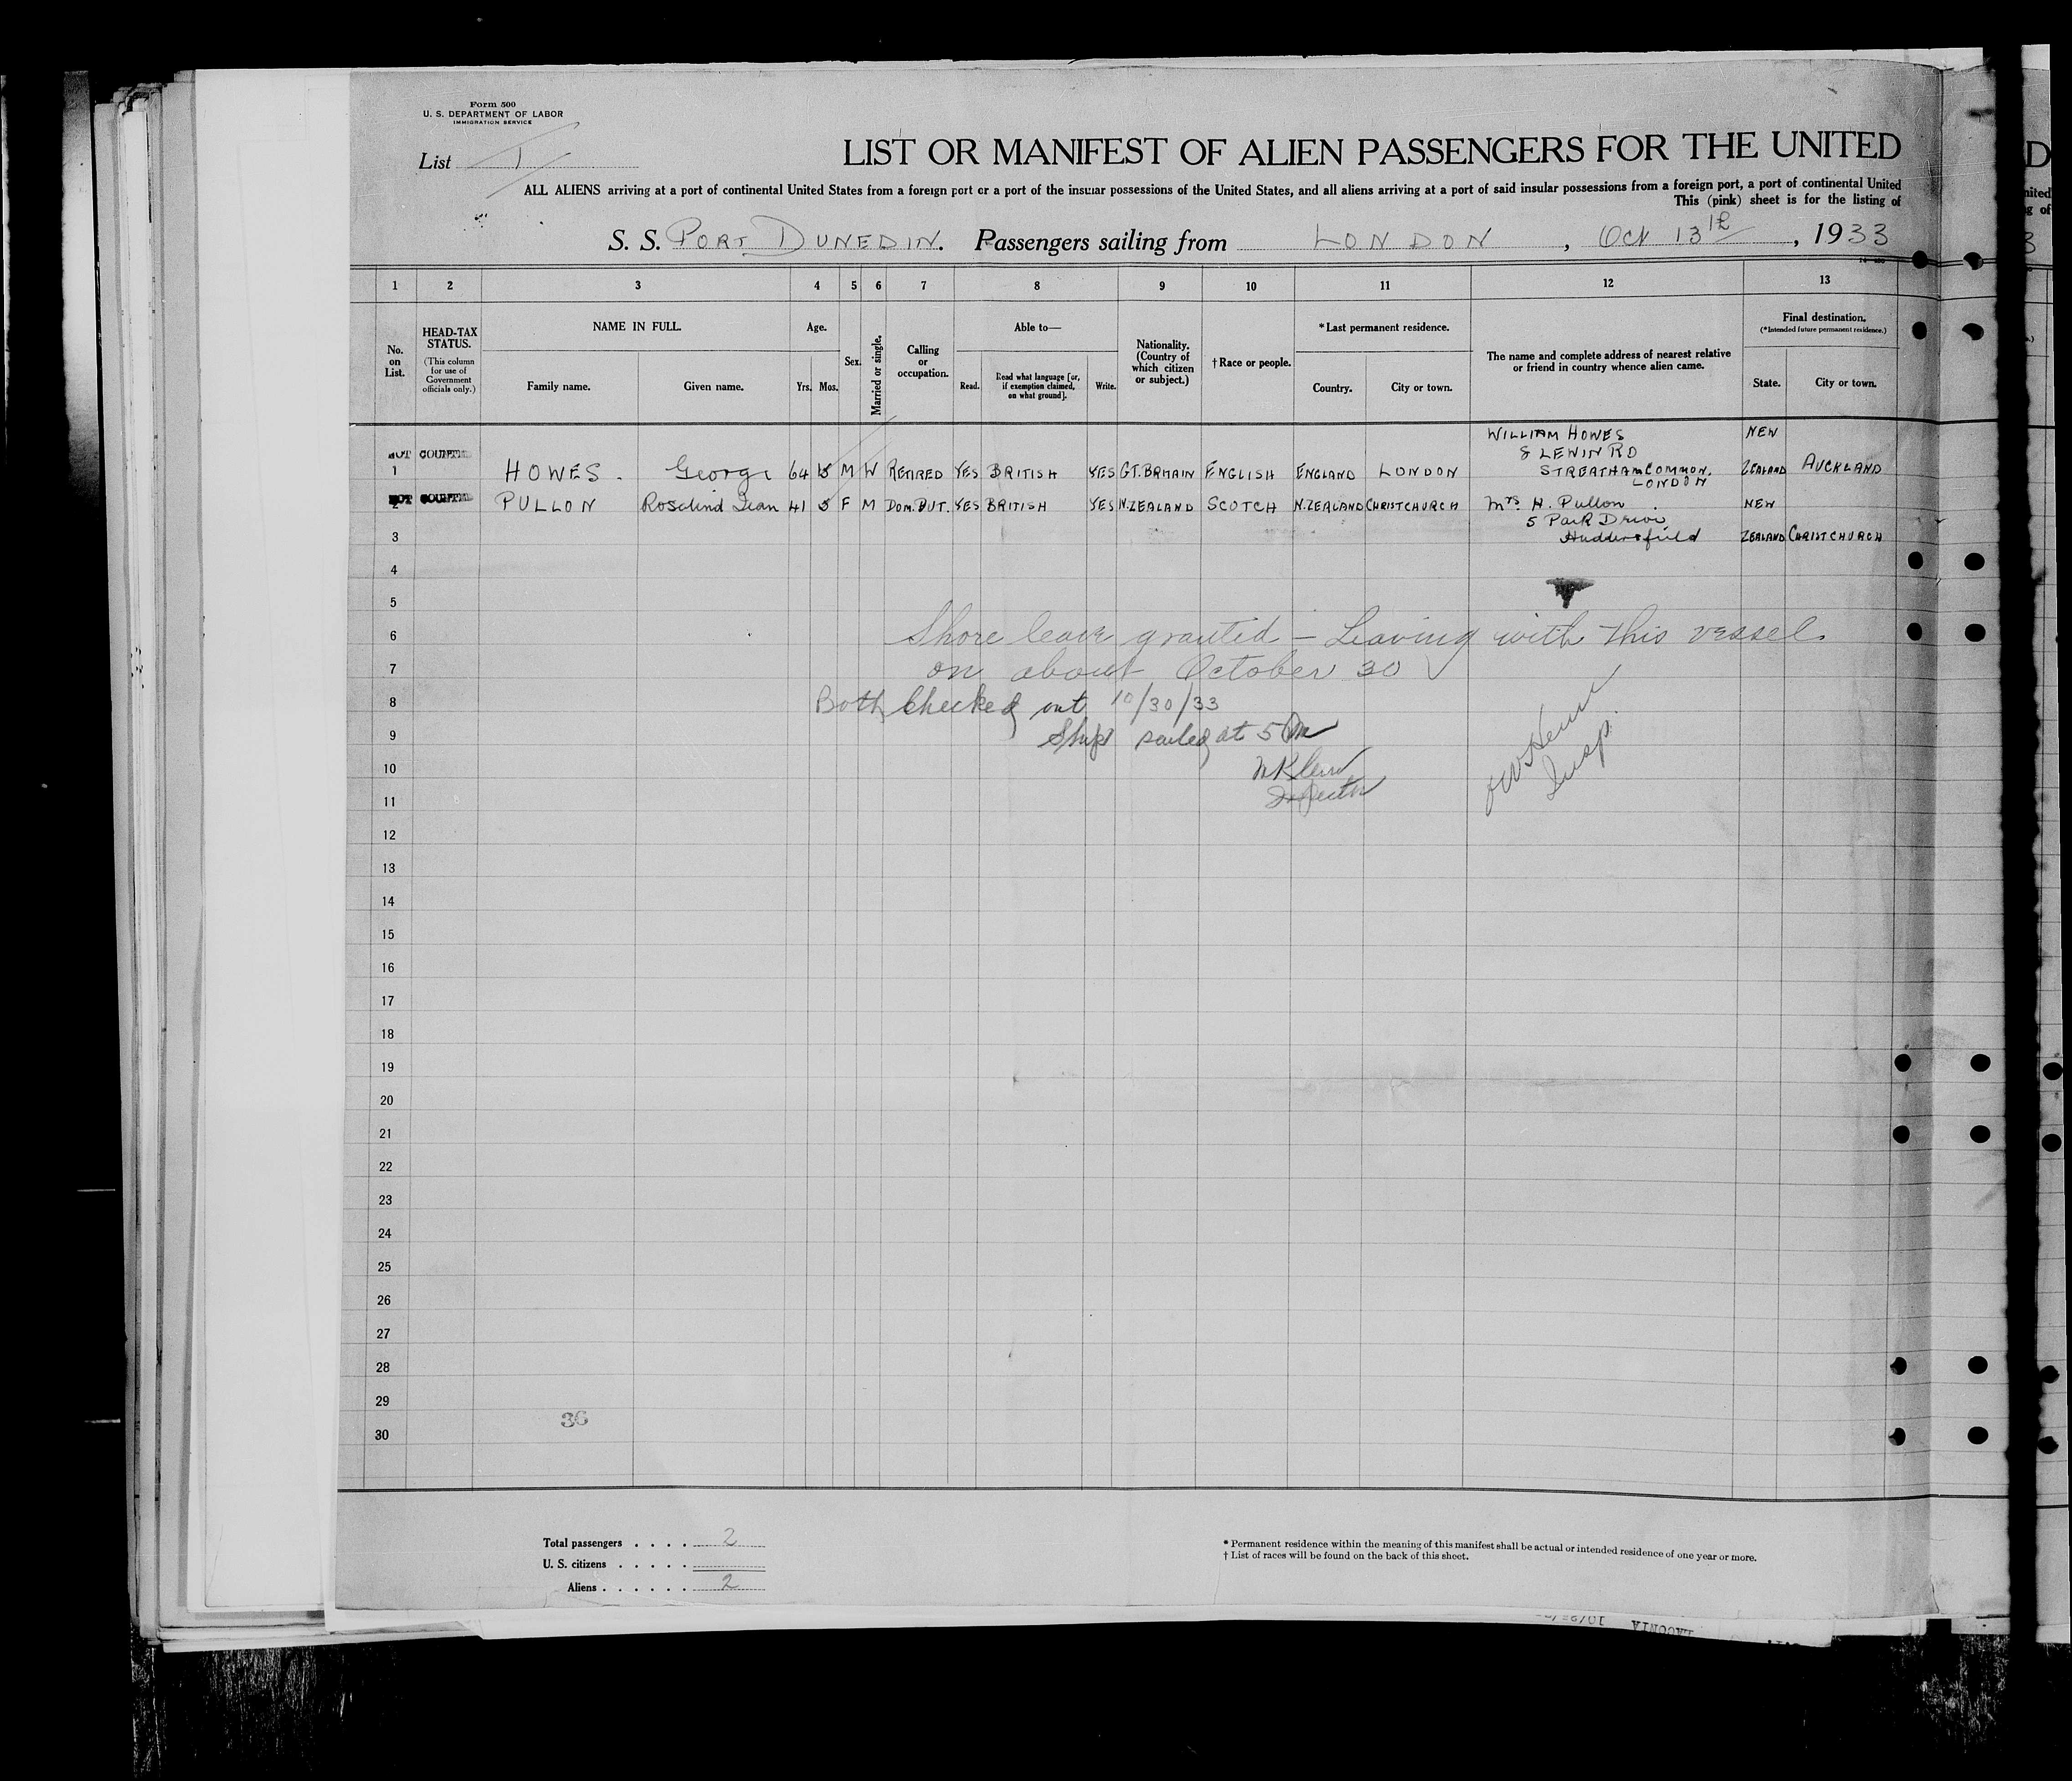 Form 500
U. S. DEPARTMENT OF LABOR
IMMIGRATION SERVICE
List 1
LIST OR MANIFEST OF ALIEN PASSENGERS FOR THE UNITED
ALL ALIENS arriving at a port of continental United States from a foreign port or a port of the insular possessions of the United States, and all aliens arriving at a port of said insular possessions from a foreign port, a port of continental United
This (pink) sheet is for the listing of
S. S. PORT DUNEDIN. Passengers sailing from LONDON, Oct 13th, 1933
1 2 3 4 5 6 7 8 9 10 11 12 13
No. on List.
HEAD-TAX STATUS.
(This column for use of Government officials only.)
NAME IN FULL.
Family name.
Given name.
Age.
Yrs. Mos.
Sex.
Married or single.
Calling or occupation.
Able to—
Read.
Read what language [or, if exemption claimed, on what ground].
Write.
Nationality. (Country of which citizen or subject.)
†Race or people.
*Last permanent residence.
Country.
City or town.
The name and complete address of nearest relative or friend in country whence alien came.
Final destination.
(*Intended future permanent residence.)
State.
City or town.
WILLIAM HOWES NEW
NOT COUNTED 8 LEWIN RD
1 HOWES. George 64 M W RETIRED YES BRITISH YES GT. BRITAIN ENGLISH ENGLAND LONDON STREATHAM COMMON. ZEALAND AUCKLAND
LONDON
NOT COUNTED PULLON Rosalind Jean 41 F M DOM. DUT. YES BRITISH YES N. ZEALAND SCOTCH N. ZEALAND CHRISTCHURCH Mrs. H. Pullon NEW
5 Park Drive
3 Huddersfield ZEALAND CHRISTCHURCH
4
5
6 Shore leave granted — Leaving with this vessel
7 on about October 30
8 Both Checked out 10/30/33
9 Ship sailed at 5 PM
10
11 Inspector
Insp.
12
13
14
15
16
17
18
19
20
21
22
23
24
25
26
27
28
29
36
30
Total passengers . . . . 2
U. S. citizens . . . . .
Aliens . . . . . . 2
* Permanent residence within the meaning of this manifest shall be actual or intended residence of one year or more.
† List of races will be found on the back of this sheet.